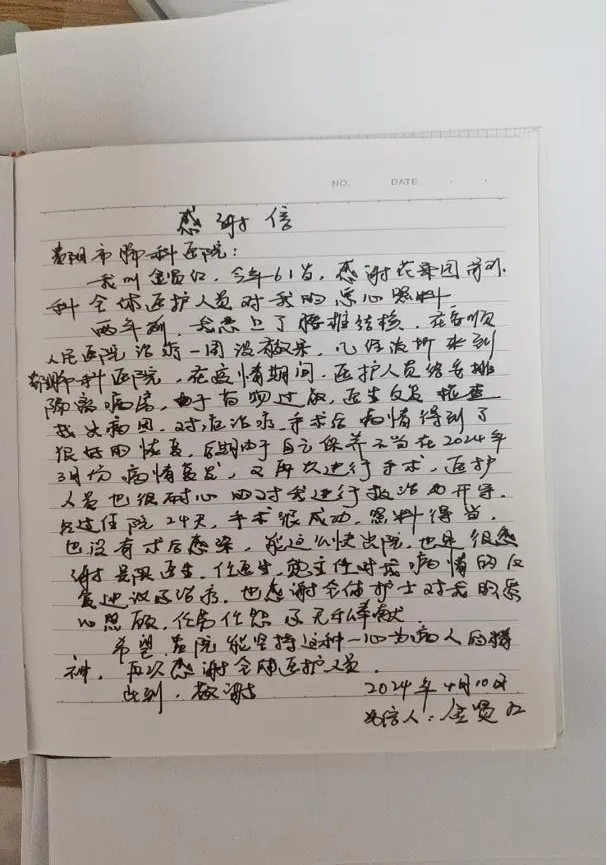 NO.
DATE
感谢信
贵阳市肺科医院：
我叫金贤红，今年61岁，感谢花果园骨外
科全体医护人员对我的悉心照料
两年前，我患上了腰椎结核，在安顺
人民医院治疗一周没有效果，几经波折来到
贵阳市肺科医院，在疫情期间，医护人员给安排
隔离病房，由于药物过敏，医生反复检查
找出病因，对症治疗，手术后病情得到了
很好的恢复，后期由于自己保养不当在2024年
3月份病情复发，又再次进行手术，医护
人员也很耐心的对我进行救治和开导，
经过住院24天，手术很成功，照料得当，
也没有术后感染，能这么快出院，也是很感
谢 医生、任医生、 主任对我病情的反
复 治疗，也感谢全体护士对我的悉
心照顾，任劳任怨 无私奉献
希望贵院能坚持这种一心为病人的精
神，再次感谢全体医护人员。
此致，敬礼
2024年4月10日
写信人：金贤红